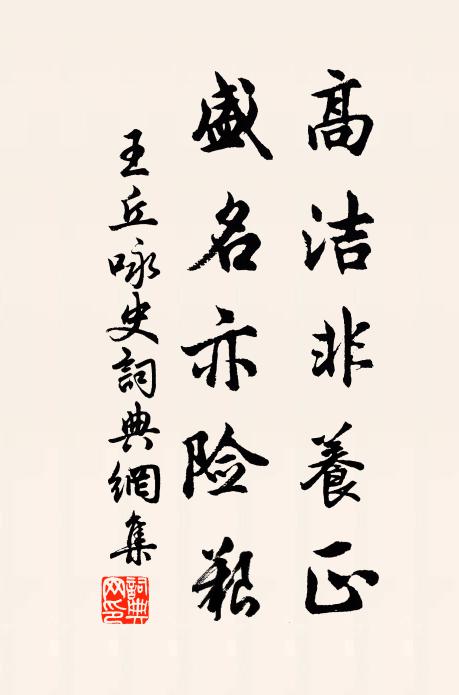 高洁非養正
盛名亦险艱
王丘咏史詞典網集
詞典网印